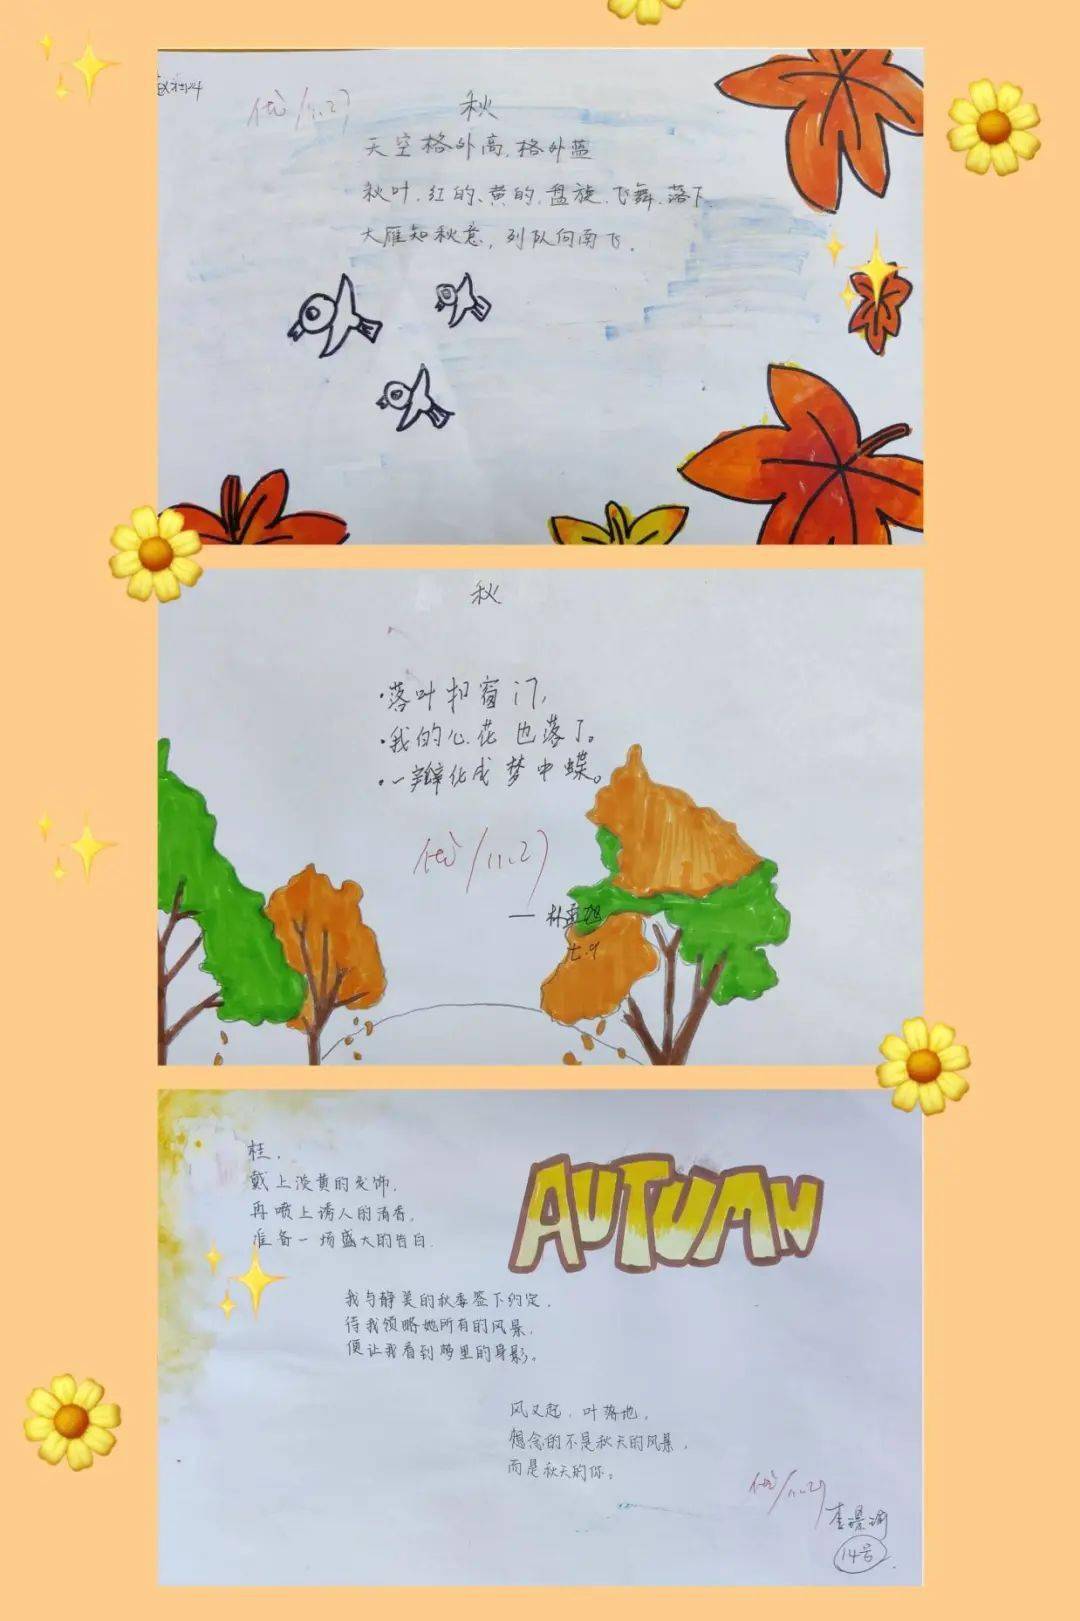 优/11.27
秋
天空格外高,格外蓝
秋叶,红的、黄的,盘旋、飞舞、落下,
大雁知秋意,列队向南飞.
秋
·落叶扣窗门,
·我的心花也落了。
·一瓣化成梦中蝶。
优/11.27
七.9
桂,
戴上淡黄的发饰,
再喷上诱人的清香,
准备一场盛大的告白.
AUTUMN
我与静美的秋季签下约定,
待我领略她所有的风景,
便让我看到梦里的身影。
风又起,叶落地,
想念的不是秋天的风景,
而是秋天的你。
优/11.27
14号